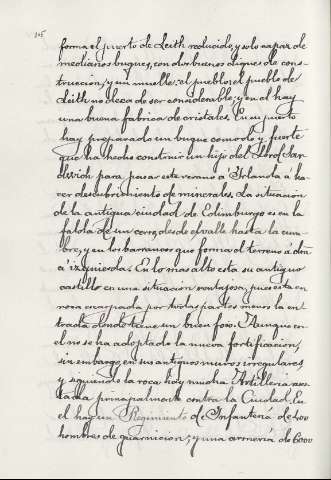 105
forma el puerto de Leith reducido, y solo capaz de
medianos buques, con dos buenos diques de cons-
truccion, y un muelle: el pueblo el pueblo de
Leith no deca de ser considerable; y en el hay
una buena fabrica de cristales. En su puerto
hay preparado un buque comodo y fuerte
que ha hecho construir un hijo del Lord San-
dwich para pasar este verano á Irlanda á ha-
cer descubrimiento de minerales. La situación
de la antigua ciudad de Edimburgo es en la
falda de un cerro, desde el valle hasta la cum-
bre, y en los barrancos que forma el terreno á dra
á izquierda. En lo mas alto esta su antiguo
castillo en una situacion ventajosa, pues esta en
roca escarpada por todas partes menos la en-
trada donde tiene un buen foso. Aunque en
el no se ha adoptado la nueva fortificacion,
sin embargo, en sus antiguos muros irregulares
y siguiendo la roca, hay mucha Artilleria mon
tada principalmente contra la Ciudad. En
el hay un Regimiento de Infanteria de 400
hombres de guarnicion; y una armería de 6000